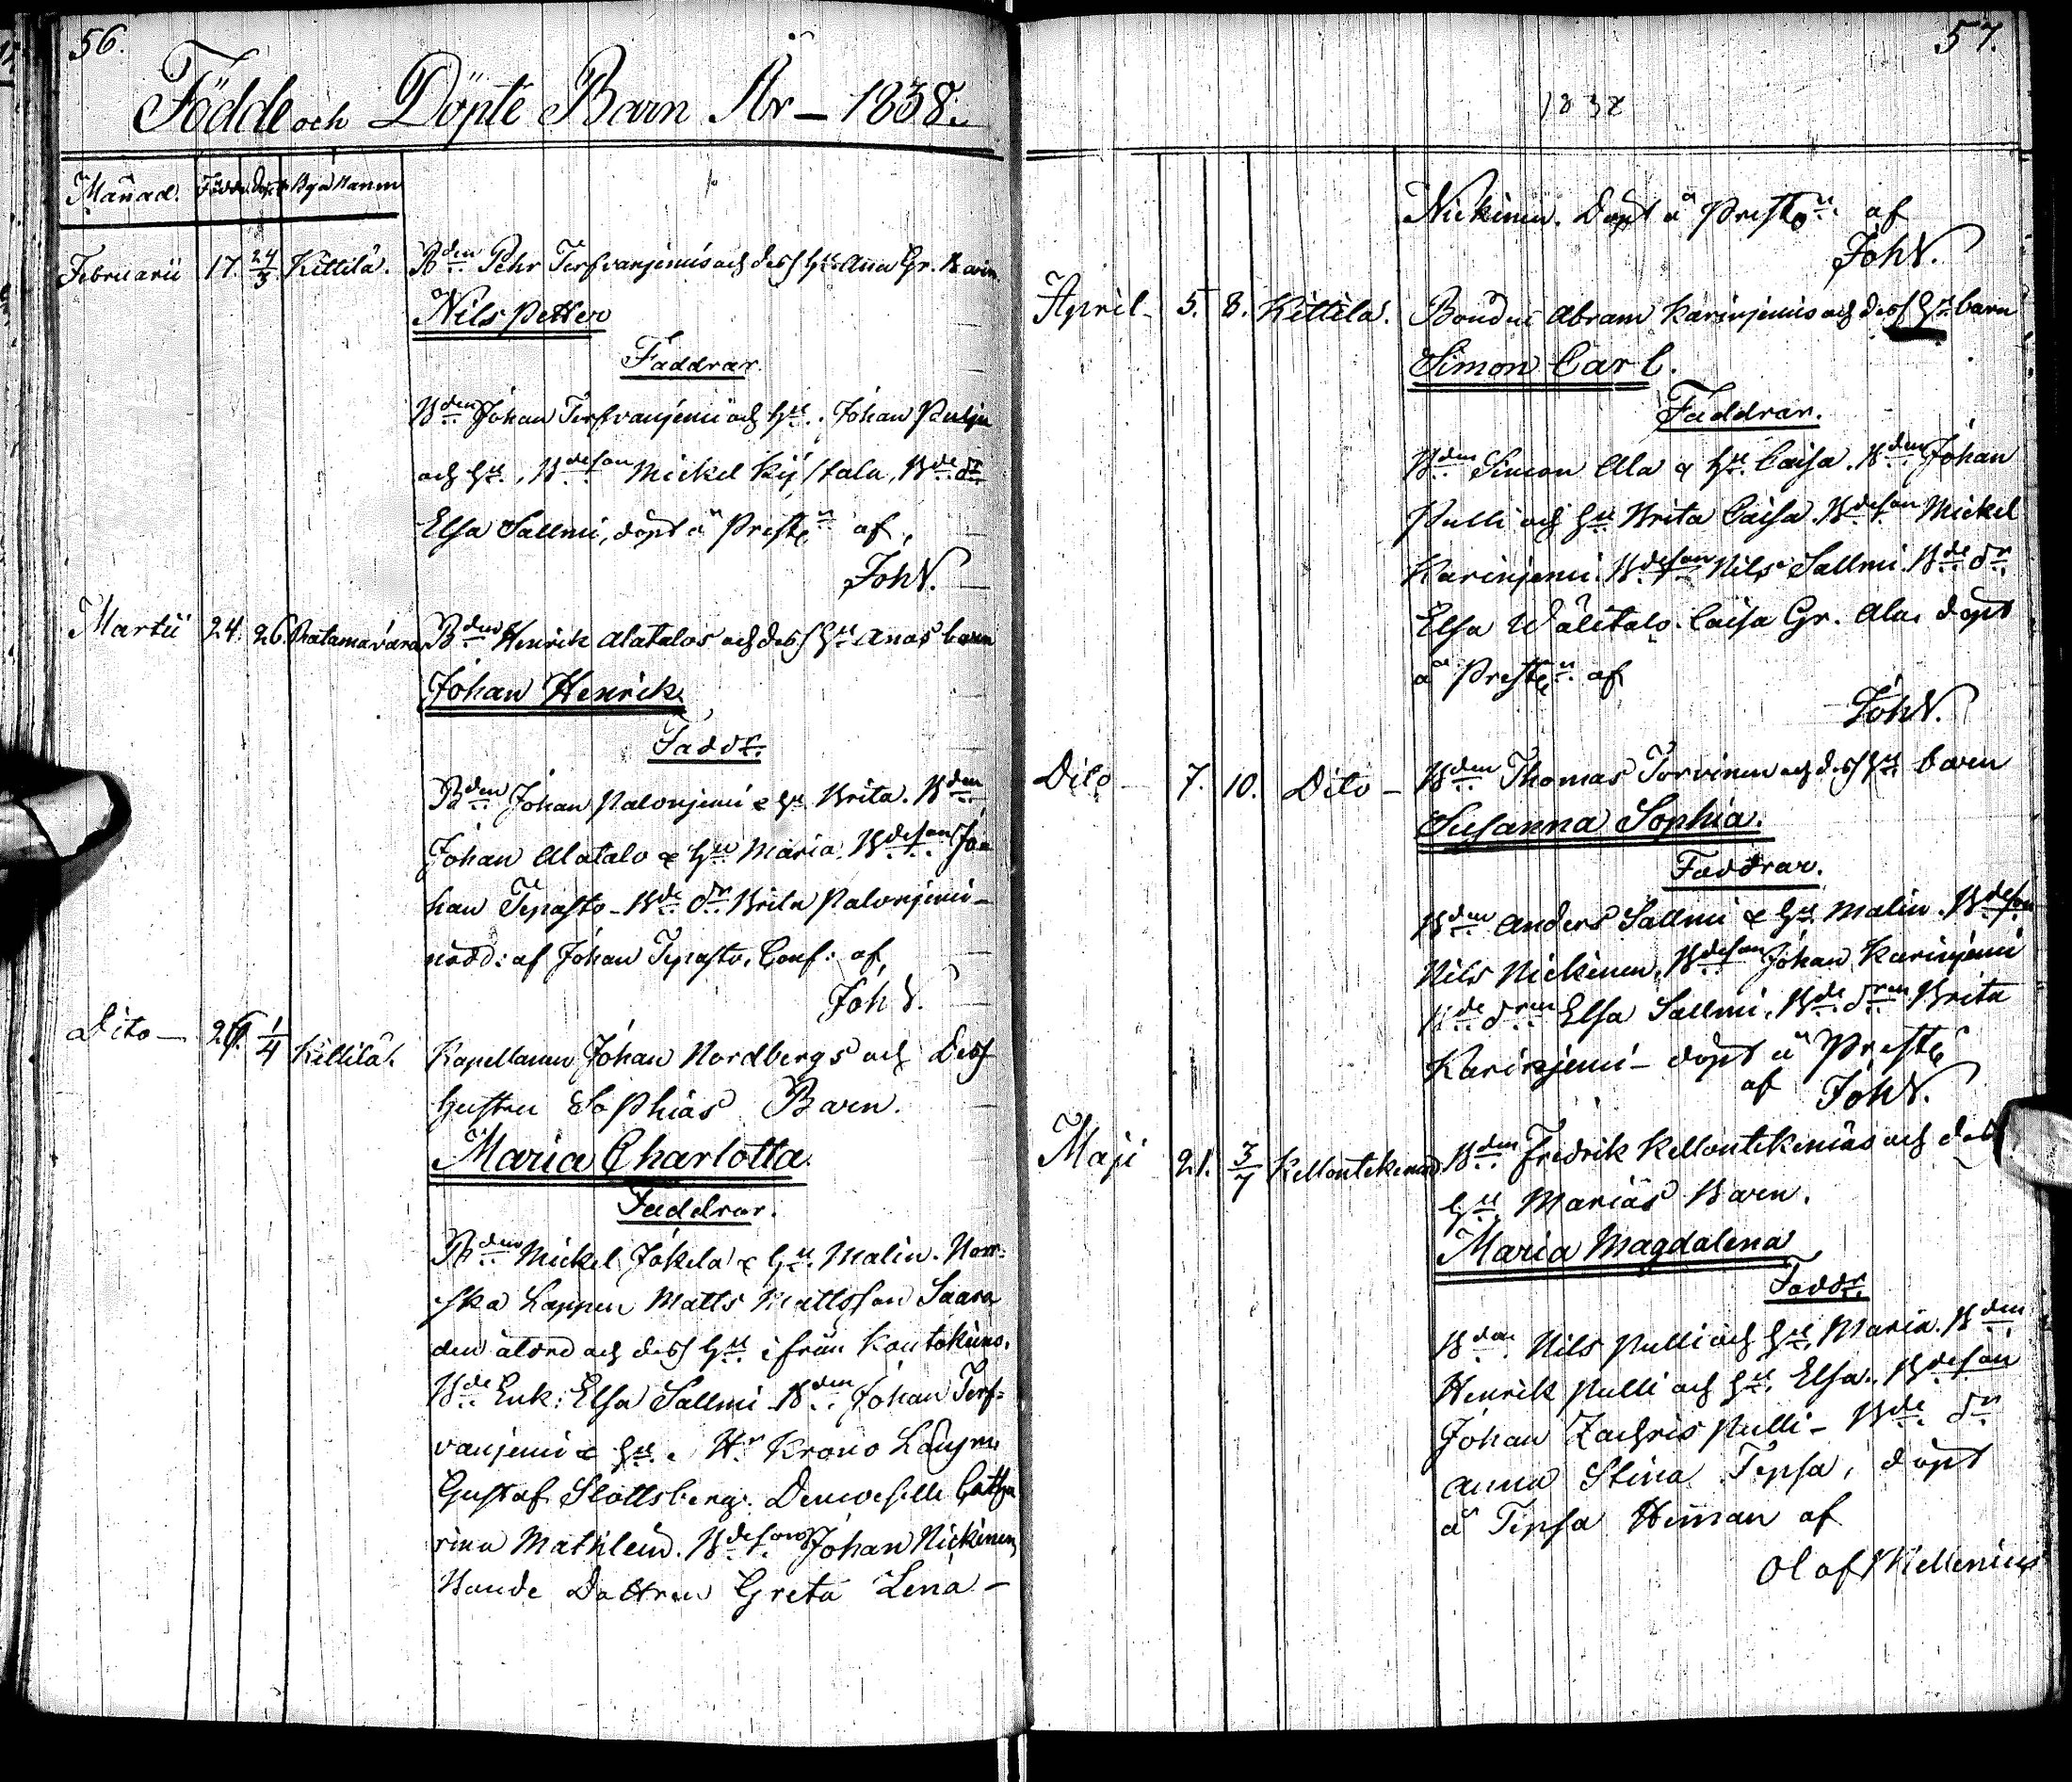 56.
Födde och Döpte Barn År – 1838.
Månad. Födde Döpte Bya Namn
Februarii 17. 24/3 Kittilä. Bden Pehr Terfvanjemis och dess Hu Anna Gr. Barn
Nils Petter
Faddrar.
Bden Johan Terfvanjemi och Hu. Johan
och Hu, Bdeson Mickel Ky stala, Bde dr
Elsa Sallmi, döpt å Preste af,
Joh N.
Martii 24. 26. Ratamavara Bden Henrik Alatalos och dess Hu Anas barn
Johan Henrik
Faddr.
Bden Johan Palonjemi & Hu Brita. Bden
Johan Alatalo & Hu Maria. Bdeson Jo=
han Tepasto – Bde dr Brita Palonjemi –
nödd: af Johan Tepasto. Conf: af,
Joh N.
Dito – 1/4 Kittilä. Kapellanen Johan Nordbergs och Dess
hustru Sophias Barn.
Maria Charlotta.
Faddrar.
Bden Mickel Jokela & Hu Malin. Norr=
ska Lappen Matts Mattsson Saara
den äldre och dess Hu ifrån Koutokeino.
Bde Enk: Elsa Sallmi. Bden Johan Terf=
vanjemi & Hu. Hr Krono Länsm.
Gustaf Slottsberg. Demoiselle Catha
rina Mathleiu. Bdeson Johan Nickinen
Bonde Dottren Greta Lena –
57.
1838
Nickinen. Döpt å Prestb. af
Joh N.
April – 5. 8. Kittilä. Bonden Abram Karinjemis och dess Hu barn
Simon Carl.
Faddrar.
Bden Simon Ala & Hu Caisa. Bden Johan
Pulli och Hu Brita Caisa. Bdeson Mickel
Karinjemi. Bdeson Nils Sallmi. Bde dr
Elsa Wälitalo. Caisa Gr. Ala. döpt
å Preste af
Joh N.
Dito – 7. 10. Dito – Bden Thomas Torvinen och dess Hu barn
Susanna Sophia.
Faddrar.
Bden Anders Sallmi & Hu Malin. Bdeson
Nils Nickinen. Bdeson Johan Karinjemi
Bde dren Elsa Sallmi. Bde dren Brita
Karinjemi – döpt å Preste
af Joh N.
Maji 21. 3/7 Kellontekemä Bden Fredrik Kellontekemäs och dess
Hu Marias Barn.
Maria Magdalena
Faddr.
Bden Nils Pulli och Hu Maria. Bden
Henrik Pulli och Hu Elsa. Bdeson
Johan Zachris Pulli – Bde dr
Anna Stina Tepsa, döpt
å Tepsa Heman af
Olof Mellenius